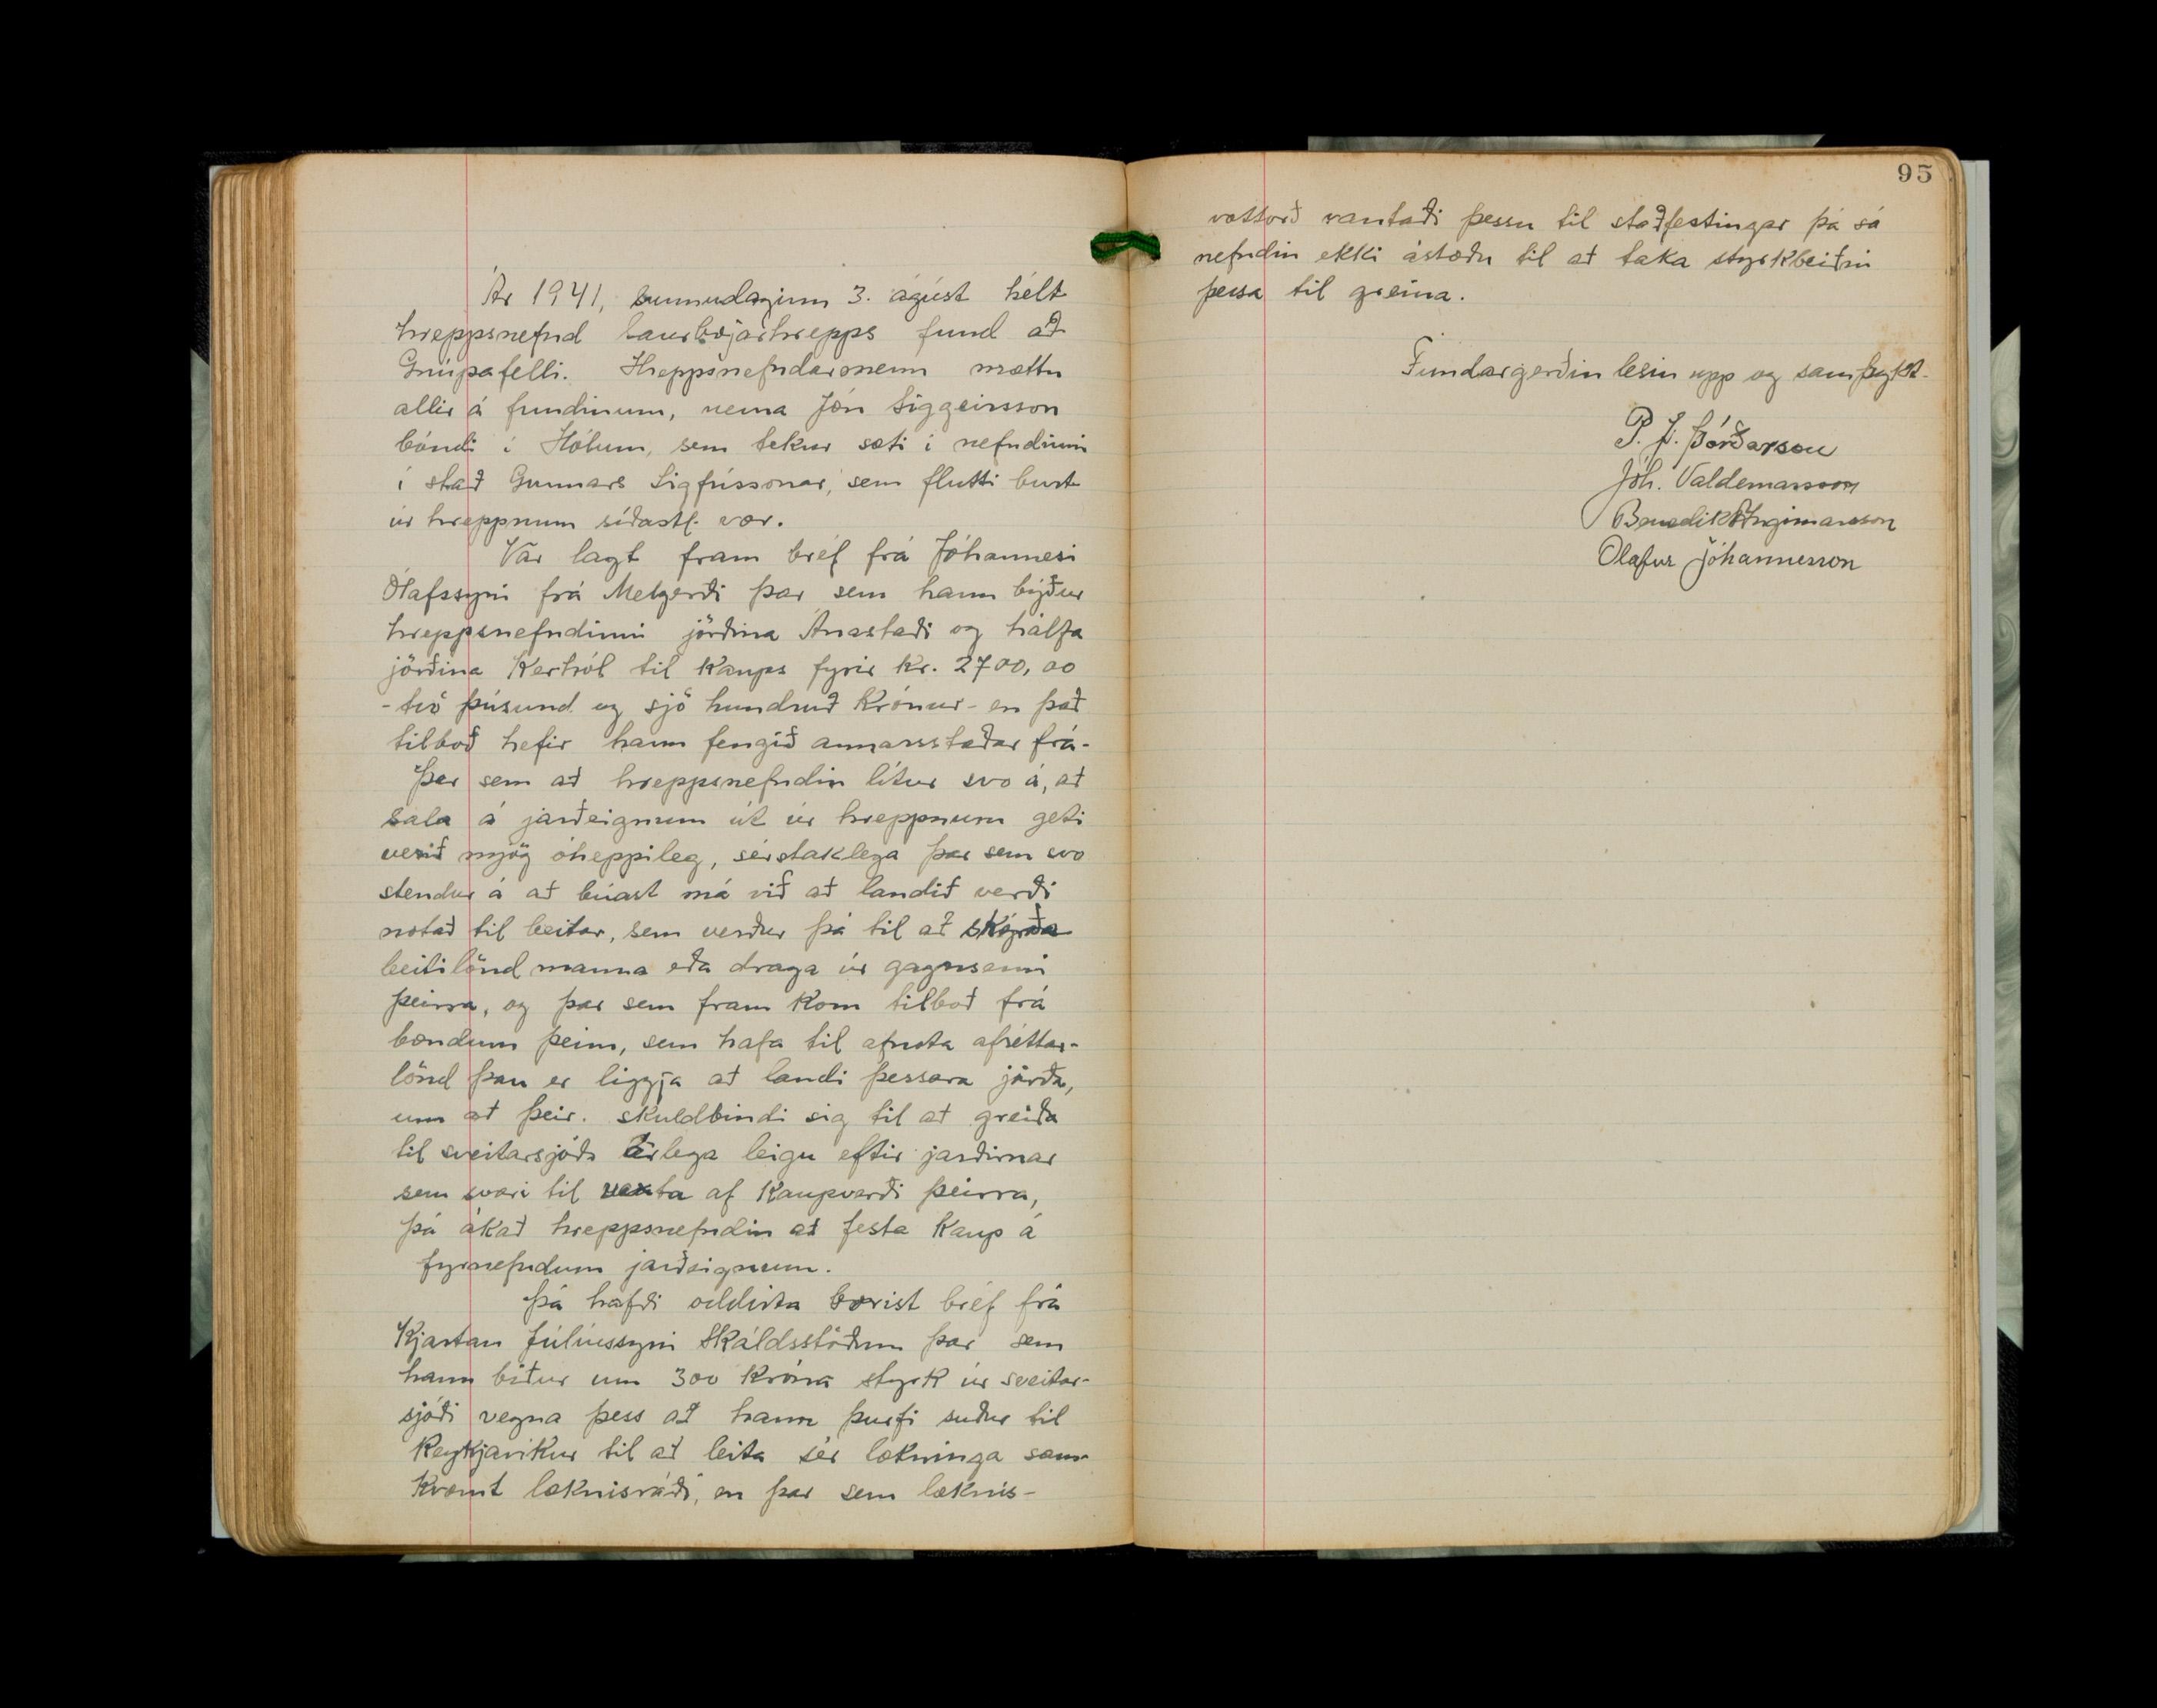 Ár 1941, sunnudaginn 3. ágúst hélt
hreppsnefnd Saurbæjarhrepps fund að
Gnúpafelli. Hreppsnefndarmenn mættu
allir á fundinum, nema Jón Siggeirsson
bóndi í Hólum, sem tekur sæti í nefndinni
í stað Gunnars Sigfússonar, sem flutti burt
úr hreppnum síðastl. vor.
Var lagt fram bréf frá Jóhannesi
Ólafssyni frá Melgerði þar sem hann býður
hreppsnefndinni jörðina Ánastaði og hálfa
jörðina Kerhól til kaups fyrir kr. 2700,00
- tvö þúsund og sjö hundruð krónur - en það
tilboð hefir hann fengið annarsstaðar frá.
Þar sem að hreppsnefndin lítur svo á, að
sala á jarðeignum út úr hreppnum geti
verið mjög óheppileg, sérstaklega þar sem svo
stendur á að búast má við að landið verði
notað til beitar, sem verður þá til að skerða
beitilönd manna eða draga úr gagnsemi
þeirra, og þar sem fram kom tilboð frá
bændum þeim, sem hafa til afnota afréttar-
lönd þau er liggja að landi þessara jarða,
um at þeir. skuldbindi sig til at greiða
til sveitarsjóðs árlega leigu eftir jarðirnar
sem svari til vexta af kaupverði þeirra,
þá ákað hreppsnefndin at festa kaup á
fyrnefndum jarðeignum.
Þá hafði oddvita borist bréf frá
Kjartan Júlíussyni Skáldsstöðum þar sem
hann biður um 300 króna styrk úr sveitar-
sjóði vegna þess að hann þurfi suður til
Reykjavíkur til að leita sér lækninga sam-
kvæmt læknisráði, en þar sem læknis-
95
vottorð vantaði þessu til staðfestingar þá sá
nefndin ekki ástæðu til at taka styrkbeiðni
þessa til greina.
Fundargerðin lesin upp og samþykkt.
P. J. Þórðarson
Jóh. Valdemarsson
Benedikt Ingimarsson
Ólafur Jóhannesson